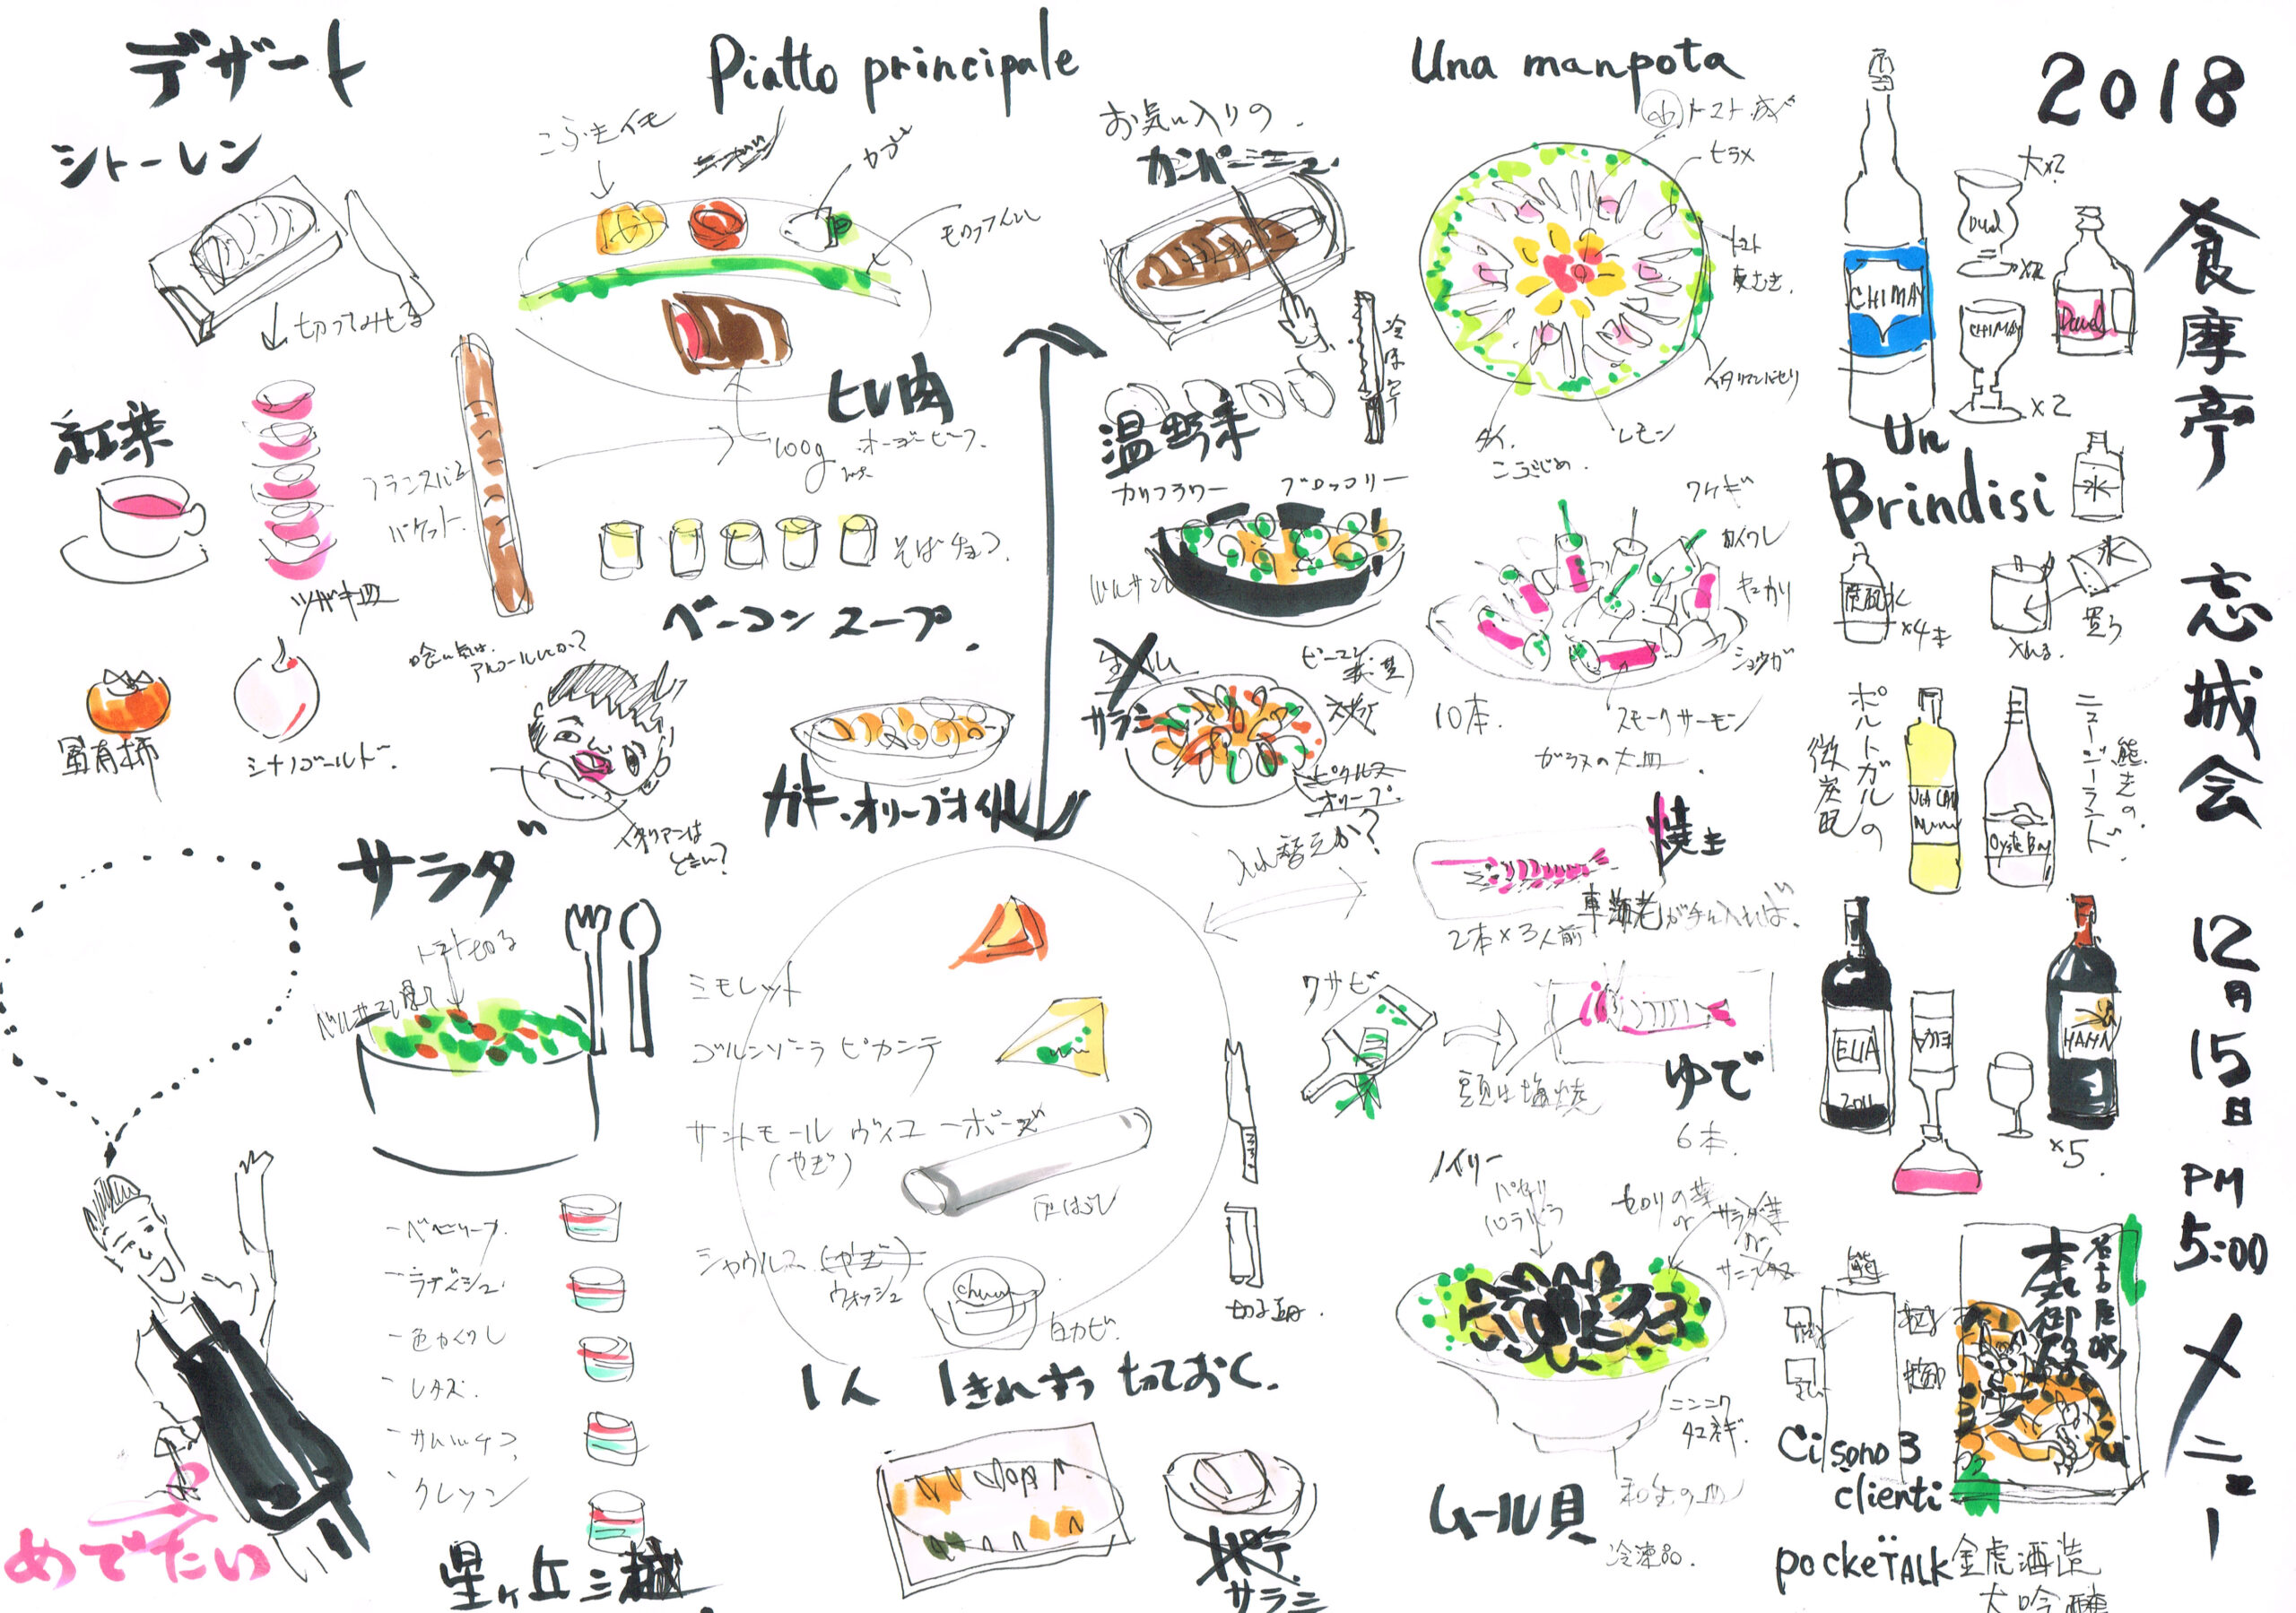 2018
食摩亭 忘城会 12月15日 PM 5:00 メニュー
大x2
Duvel
x2
CHIMAY
CHIMAY
Duvel
x2
Un
Brindisi
水
炭酸水
x4本
氷
買う
入れる.
ポルトガルの
微炭酸
ニュージーランド
熊さの.
Oyster Bay
ELIA
2011
HAHN
x5.
熊
Ci sono 3
clienti
pockeTALK
名古屋城
本丸御殿
金虎酒造
大吟醸
Una manpota
トマト.
ヒラメ
トマト
皮むき.
イタリアンパセリ
タイ.
こぶじめ.
レモン
ワケギ
カイワレ
キュウリ
ショウガ
スモークサーモン
10本.
ガラスの大皿.
焼き
車海老が手に入れば.
2本x3人前
入れ替えか?
ワサビ
頭は塩焼
ゆで
6本.
ノイリー
パセリ
パラパラ
セロリの葉
or
サラダ菜
or
サニーレタス
ニンニク
タマネギ.
ムール貝
和生の皿
冷凍80.
お気に入りの.
カンパーニュ.
温野菜
カリフラワー
ブロッコリー
バルサミコ
生ハム
サラミ
ピーマン
ピクルス
オリーブ.
Piatto principale
こふきイモ
カブ
モロッコインゲン
ヒレ肉
100g
オージービーフ.
フランスパン
バケット.
そばチョコ.
ベーコンスープ.
喰い気は.
アルコールにか?
イタリアンは
どきい?
カキ.オリーブオイル
ミモレット
ゴルゴンゾーラ ピカンテ
サントモール ヴィユーボーズ
(やぎ)
灰まぶし
シャウルス (やぎ)
ウォッシュ
白カビ.
1人 1きれずつ 切っておく.
パテ
サラミ
デザート
シトーレン
切ってみせる
紅茶
ツガキ皿
富有柿
シナノゴールド.
サラダ
トマトものる
バルサミコ
-ベビリーフ.
-ラディシュ.
-色カイワレ
-レタス.
-クレソン
星ヶ丘三越
めでたい